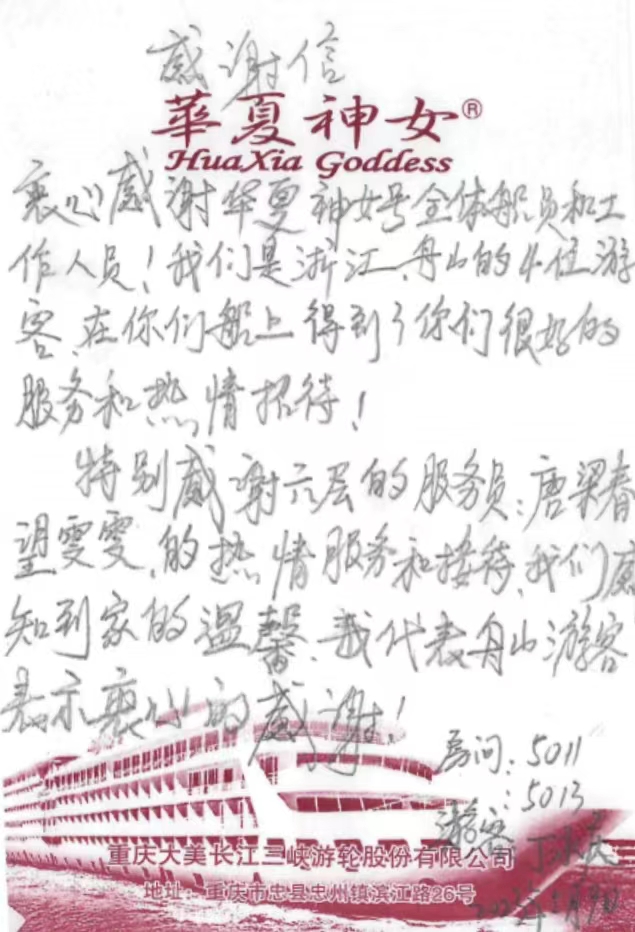 感谢信
華夏神女®
HuaXia Goddess
衷心感谢华夏神女号全体船员和工
作人员！我们是浙江、舟山的4位游
客、在你们船上得到了你们很好的
服务和热情招待！
特别感谢六层的服务员：唐梁春
望雯雯、的热情服务和接待、我们感
知到家的温馨、我代表舟山游客
表示衷心的感谢！
房间：5011
：5013
重庆大美长江三峡游轮股份有限公司
游客
地址：重庆市忠县忠州镇滨江路26号